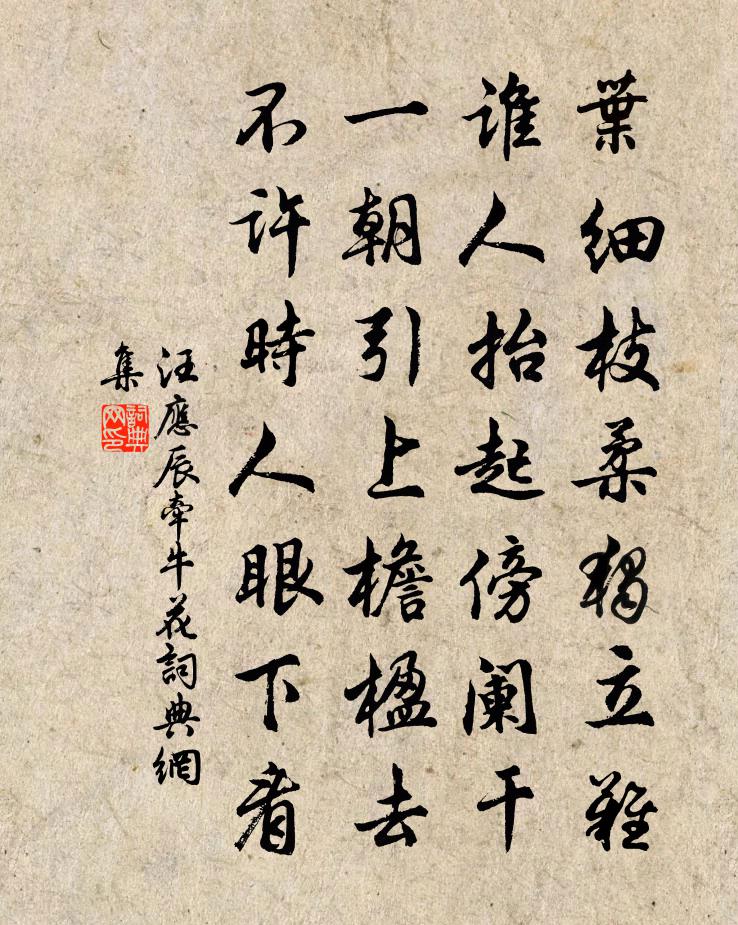 葉細枝柔獨立難
誰人抬起傍闌干
一朝引上檐楹去
不許時人眼下看
汪應辰牽牛花詞典網
集
詞典
网印